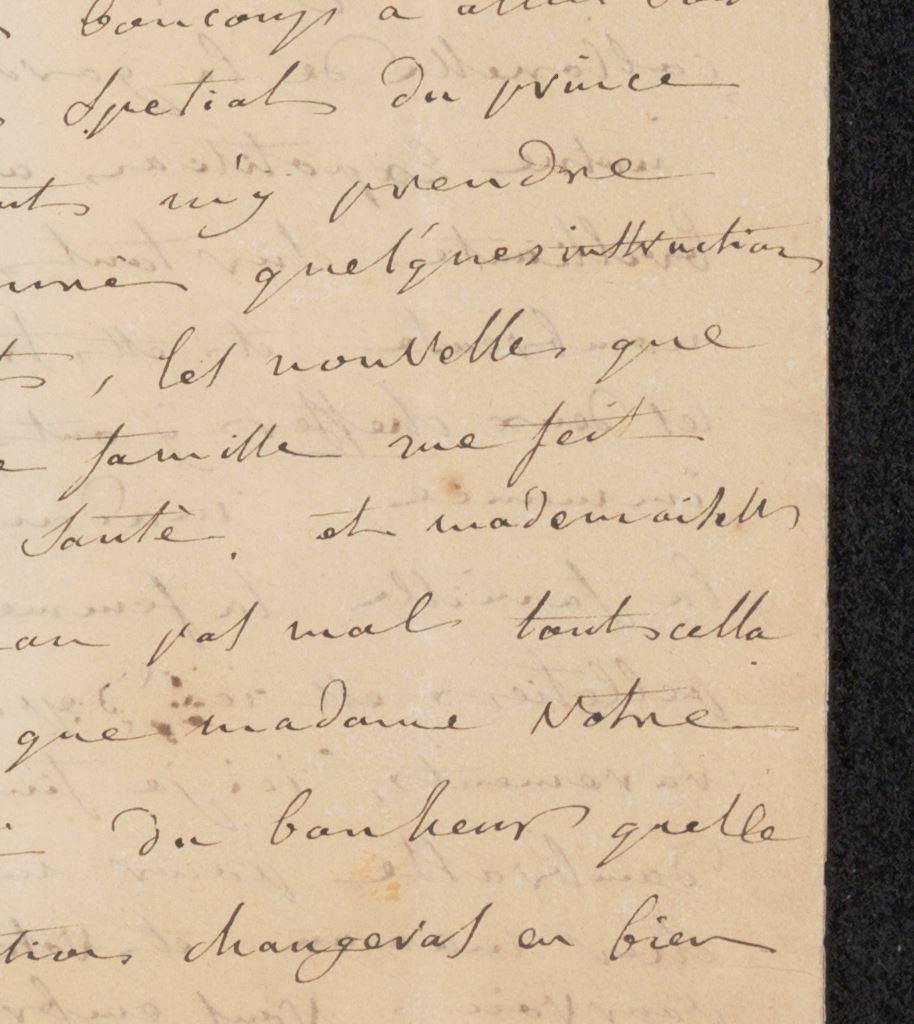 boucoup a
Spetial du prince
m'y prendre
quelques instruction
, les nouvelles que
famille me feit
Santè. et mademoiselle
pas mal tout cella
que madame Notre
du bonheur quelle
tion changeras en bien